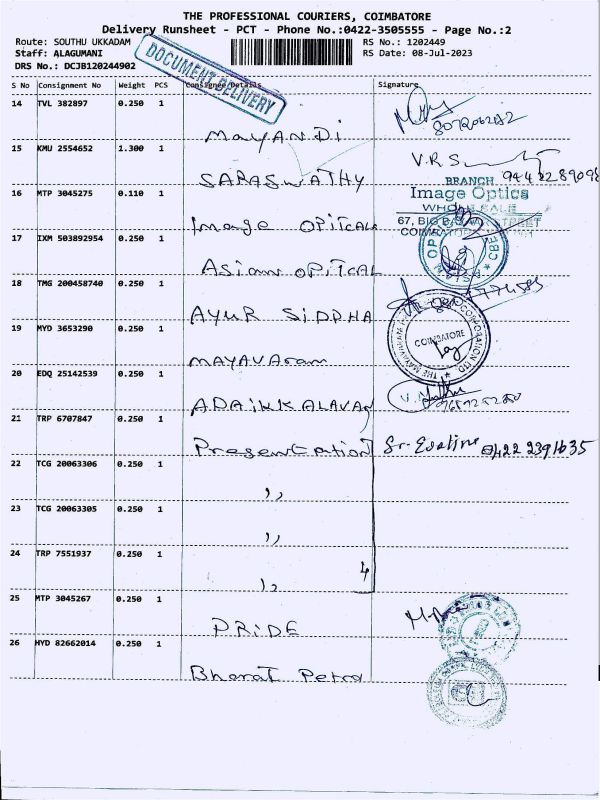 THE PROFESSIONAL COURIERS, COIMBATORE
Delivery Runsheet - PCT - Phone No.:0422-3505555 - Page No.:2
Route: SOUTHU UKKADAM RS No.: 1202449
Staff: ALAGUMANI RS Date: 08-Jul-2023
DRS No.: DCJB120244902
DOCUMENT DELIVERY
S No Consignment No Weight PCS Consignee Details Signature
14 TVL 382897 0.250 1
MAYANDi
15 KMU 2554652 1.300 1 V.R.S
SARASWATHY
BRANCH
16 MTP 3045275 0.110 1 Image Optics
WHOLE SALE
Image OPITCALS
67, BIG STREET
17 IXM 503892954 0.250 1
Asian OPITCAL
18 TMG 200458740 0.250 1
AYUR SiDDHA
19 MYD 3653290 0.250 1 COIMBATORE
MAYAVAram
20 EDQ 25142539 0.250 1
ADAiKKALAVAN
21 TRP 6707847 0.250 1
Presentation Sr. Evaline 0422 2391635
22 TCG 20063306 0.250 1
,,
23 TCG 20063305 0.250 1
,,
24 TRP 7551937 0.250 1
,, 4
25 MTP 3045267 0.250 1
PRiDE
26 HYD 82662014 0.250 1
Bharat Petro